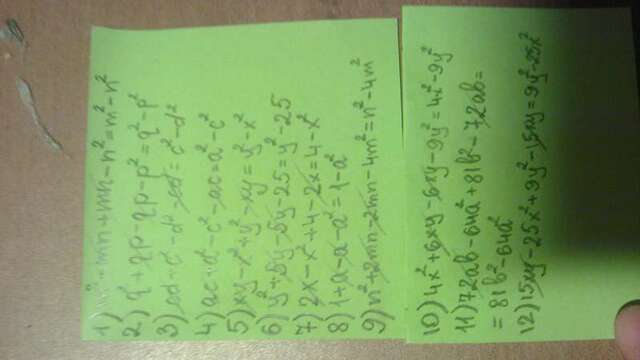 1) - mn + mn - n² = m² - n²
2) q² + qp - qp - p² = q² - p²
3) cd - c² - d² - cd = c² - d²
4) ac + a² - c² - ac = a² - c²
5) xy - x² + y² - xy = y² - x²
6) y² + 5y - 5y - 25 = y² - 25
7) 2x - x² + 4 - 2x = 4 - x²
8) 1 + a - a - a² = 1 - a²
9) n² + 2mn - 2mn - 4m² = n² - 4m²
10) 4x² + 6xy - 6xy - 9y² = 4x² - 9y²
11) 72ab - 64a² + 81b² - 72ab =
= 81b² - 64a²
12) 15xy - 25x² + 9y² - 15xy = 9y² - 25x²